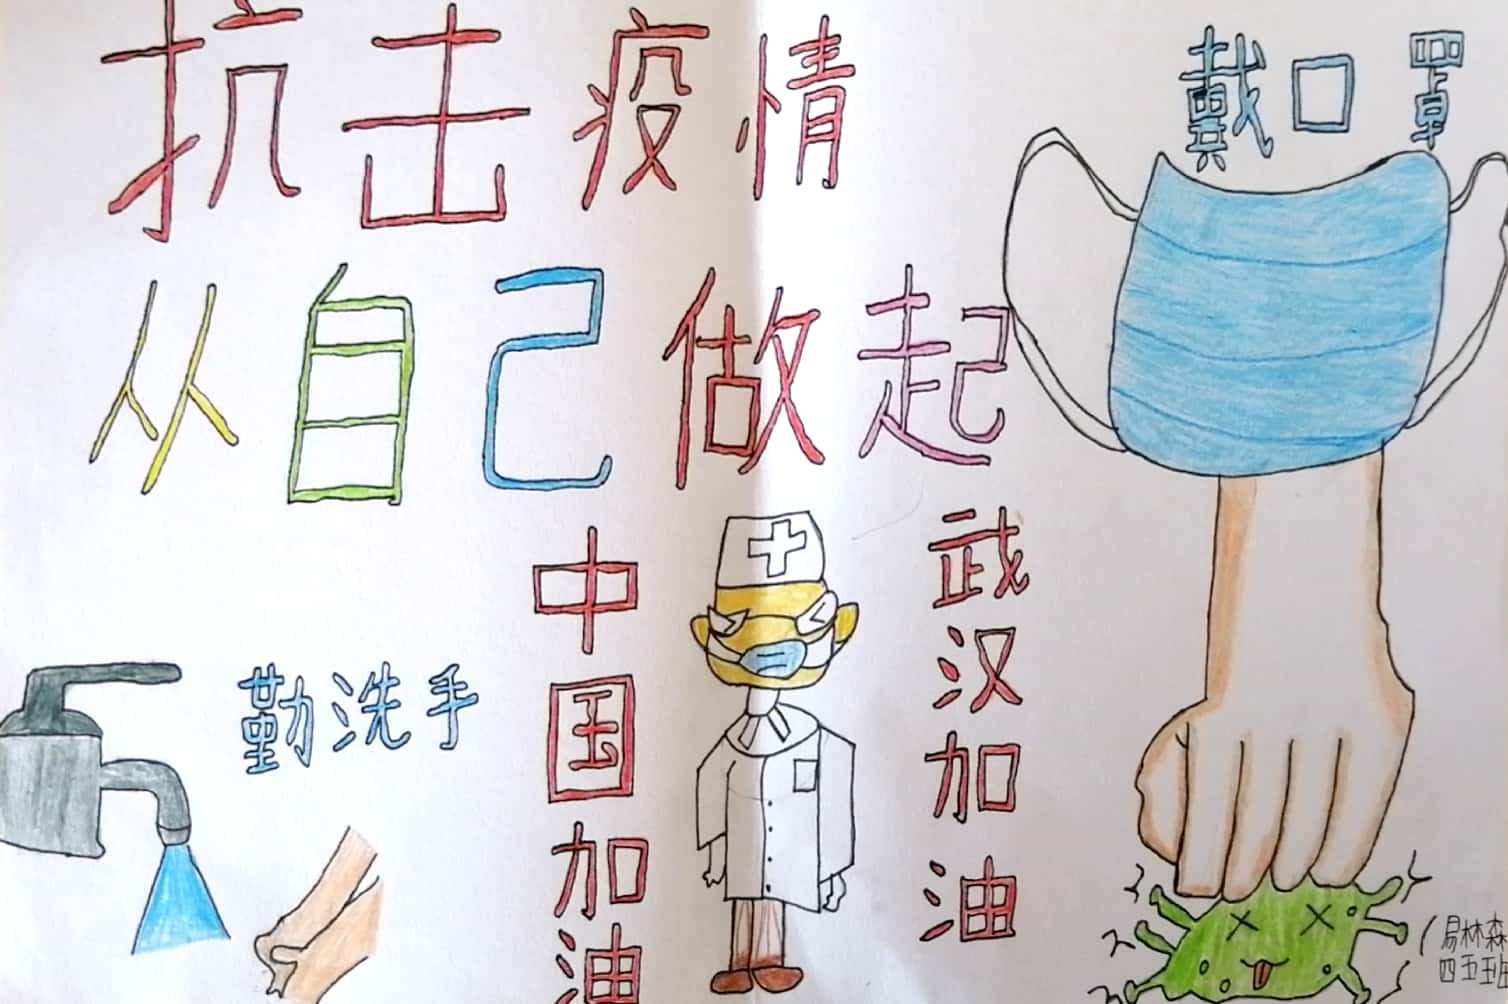 抗击疫情
戴口罩
从自己做起
中国加油
武汉加油
勤洗手
易林森
四五班